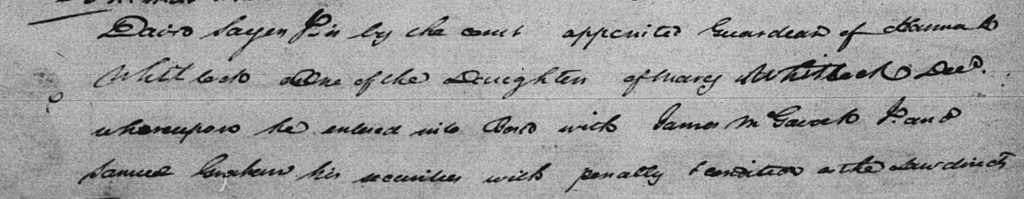 David Sayers Jr. is by the court appointed Guardean of Hannah
Whitlock One of the Daughters of Mary Whitlock Decd.
whereupon he entered into Bond with James McGavock Jr. and
Samuel Graham his securities with penalty & condition as the Law directs